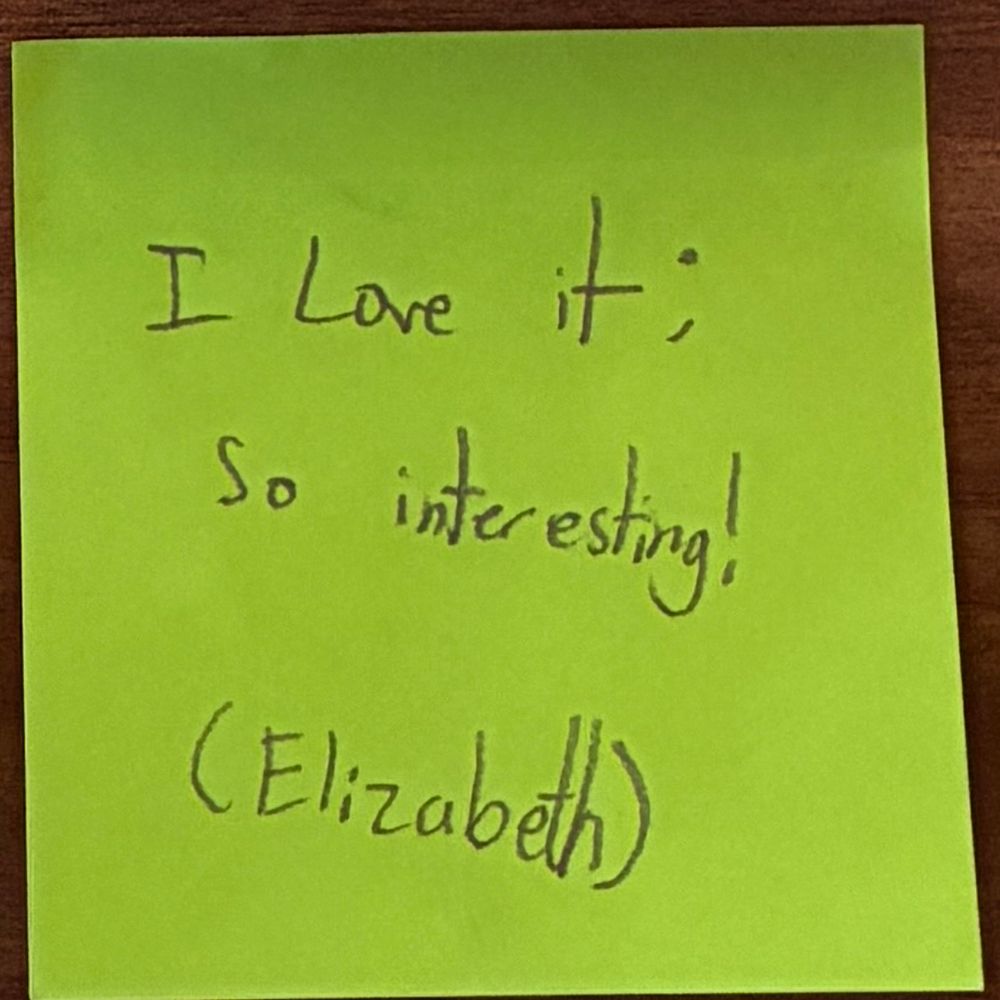 I Love it;
So interesting!
(Elizabeth)